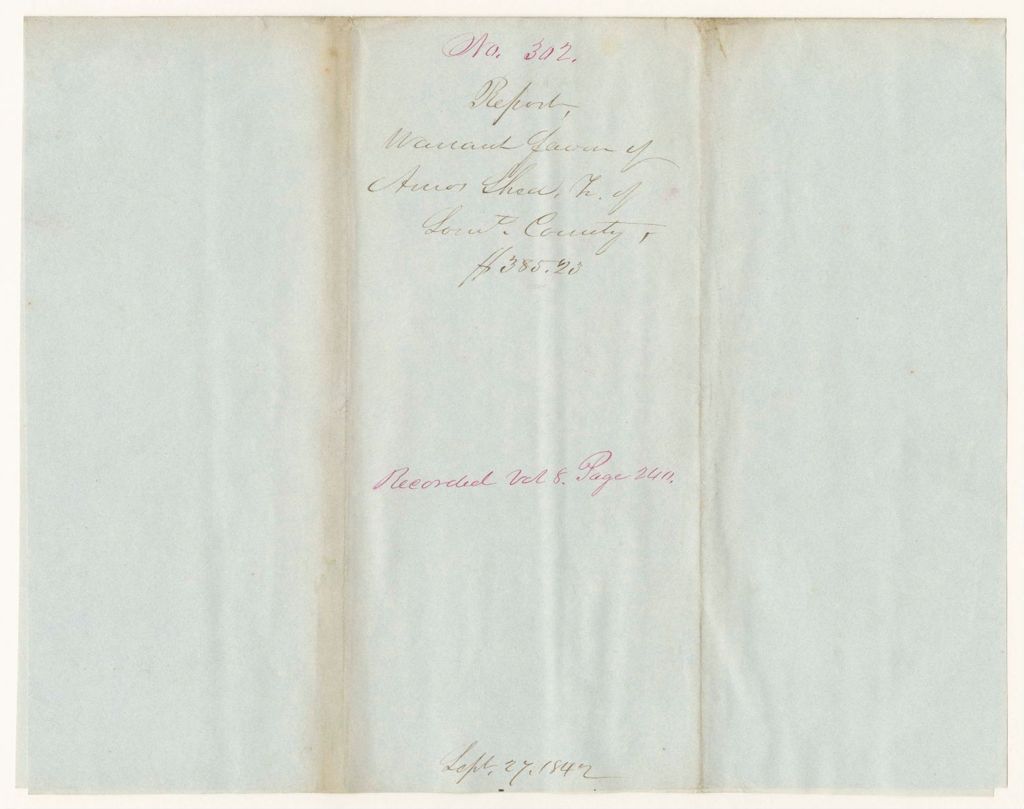 No. 302.
Report,
Warrant favour of
Amos Shed, Tr. of
County,
$385.23
Recorded Vol 8. Page
Sept. 27. 1842